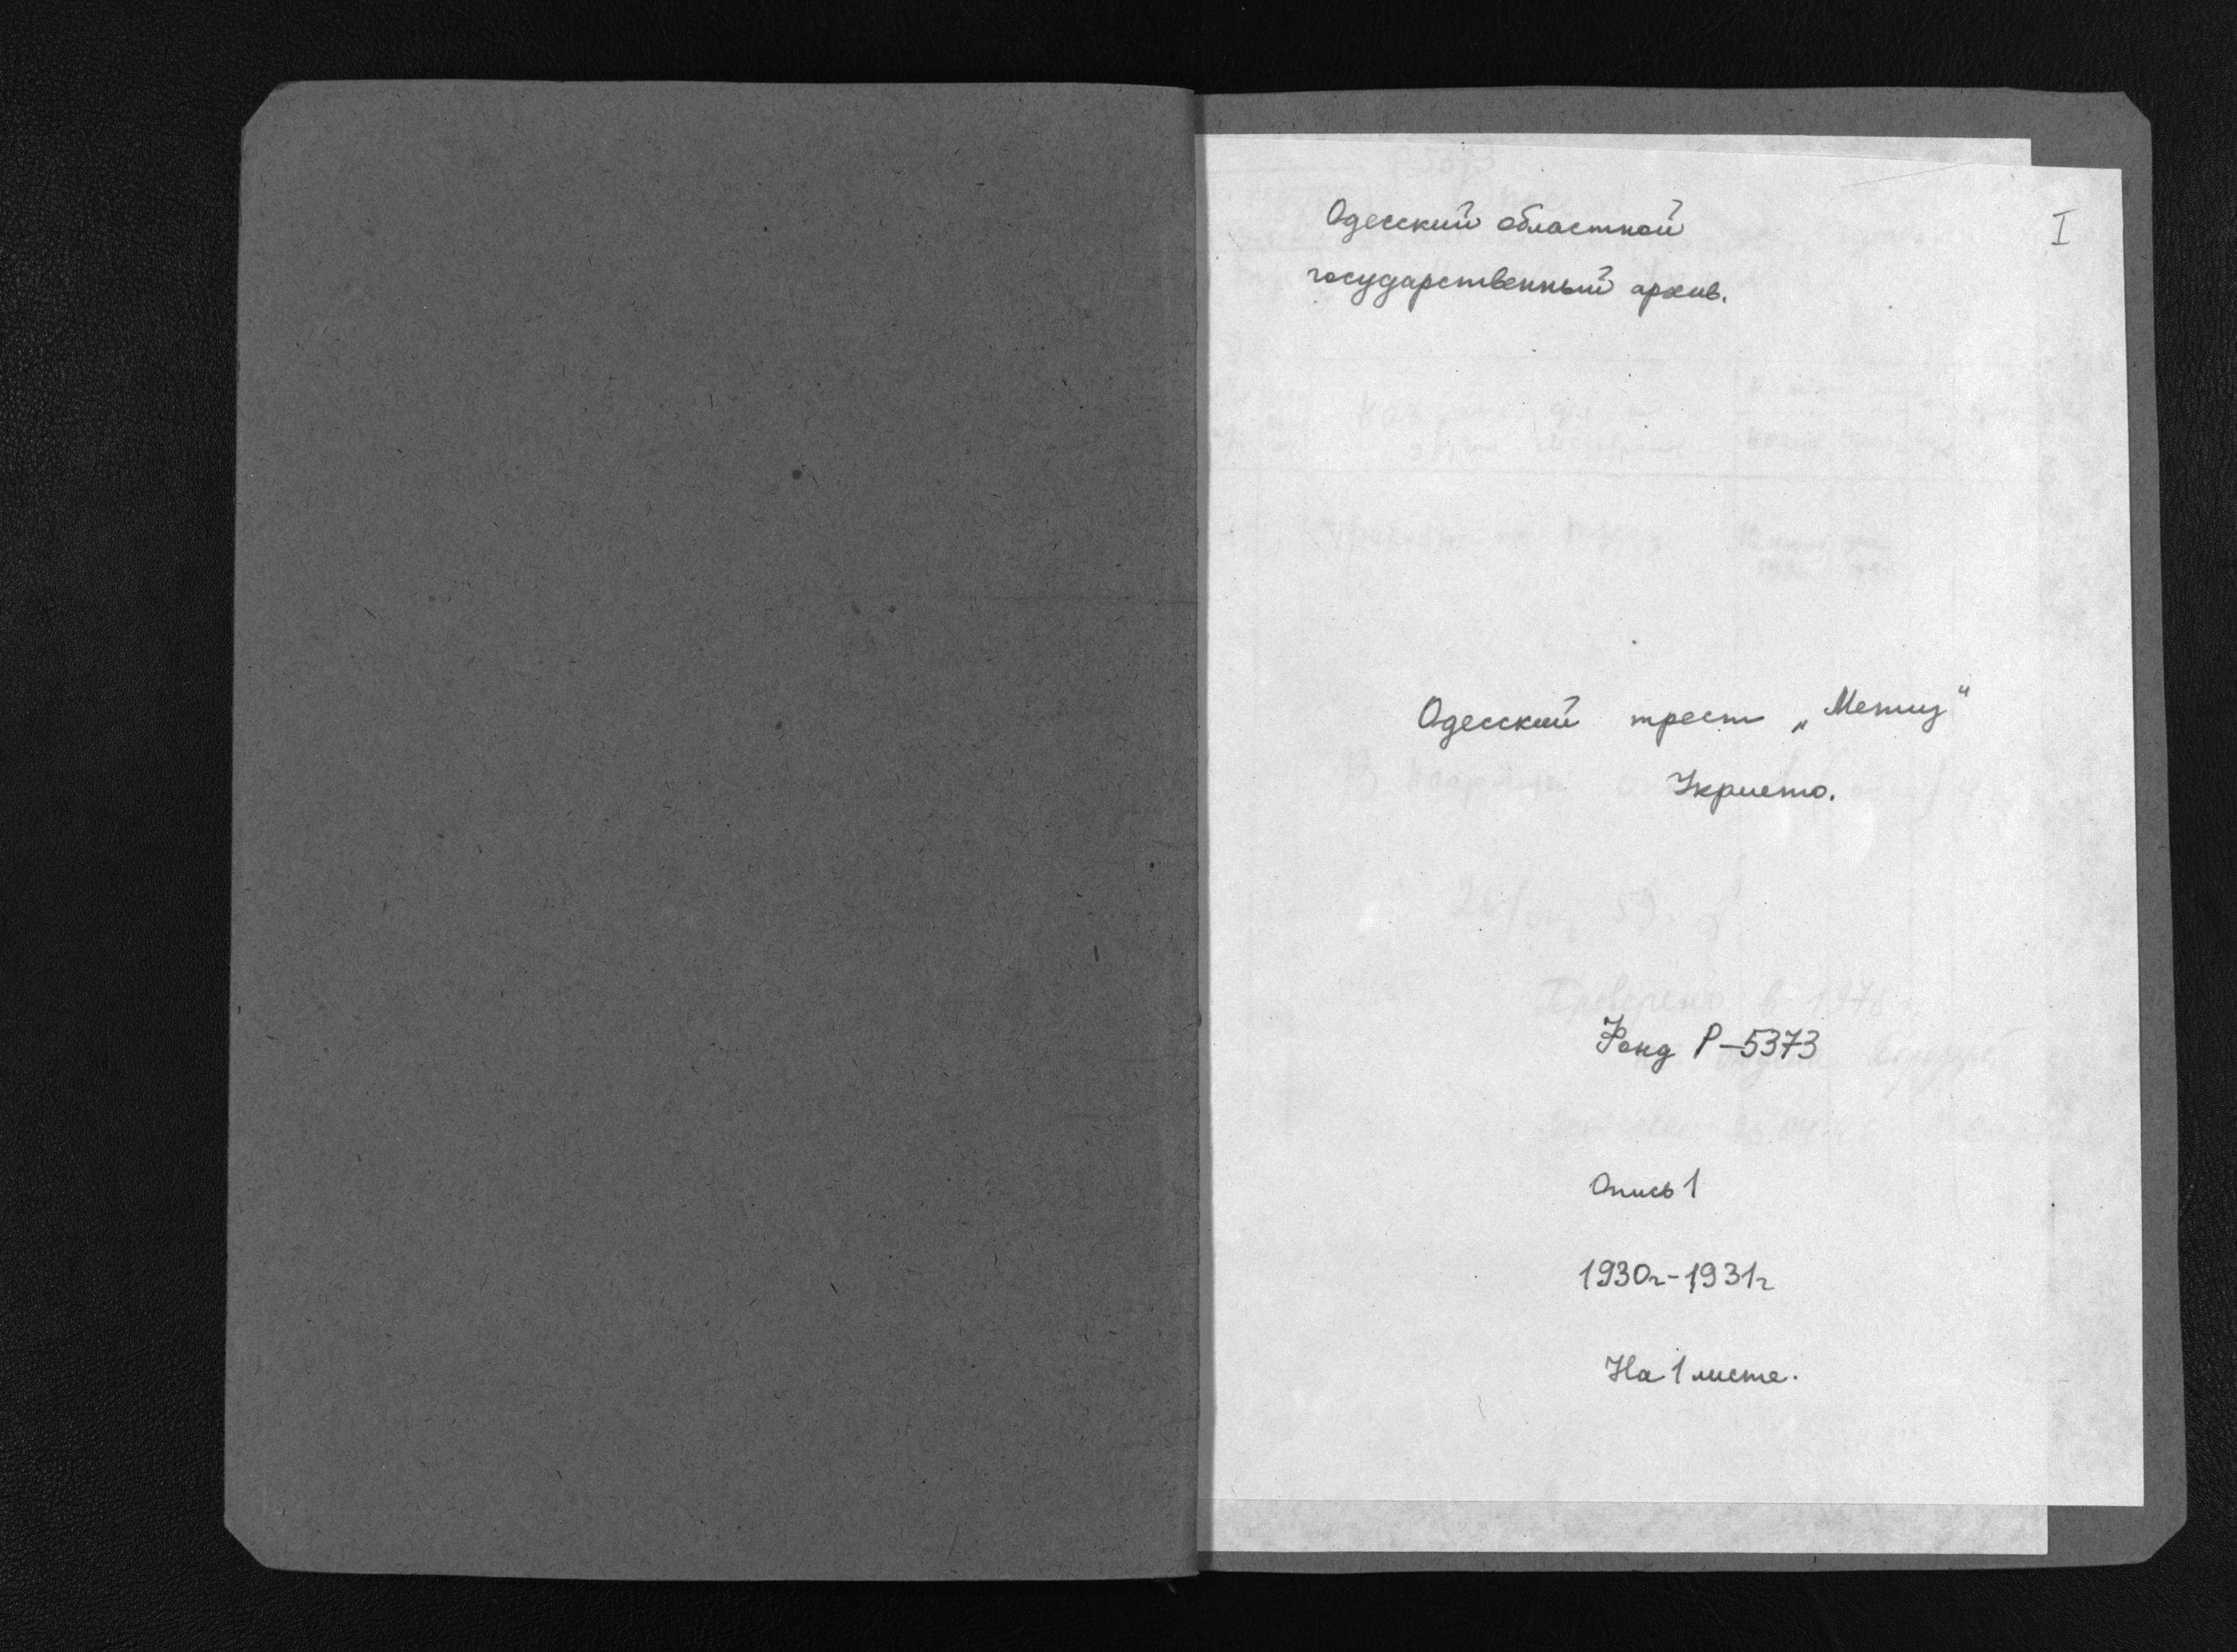 I
Одесский областной
государственный архив.
Одесский трест „Метиз“
Укрмето.
Фонд Р-5373
Опись 1
1930г-1931г
На 1 листе.